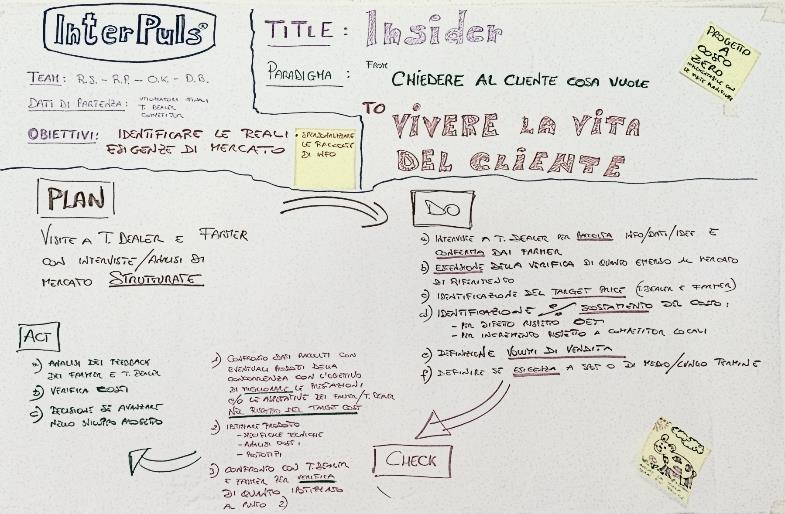 InterPuls
TEAM: R.S. - R.P. - O.K. - D.B.
DATI DI PARTENZA:
T. DEALER
COMPETITOR
OBIETTIVI: IDENTIFICARE LE REALI
ESIGENZE DI MERCATO
SPERSONALIZZARE
LE RACCOLTE
DI INFO
TITLE: Insider
PARADIGMA:
FROM CHIEDERE AL CLIENTE COSA VUOLE
TO VIVERE LA VITA
DEL CLIENTE
PROGETTO
A
COSTO
ZERO
PLAN
VISITE A T. DEALER E FARMER
CON INTERVISTE/ANALISI DI
MERCATO STRUTTURATE
DO
a) INTERVISTE A T. DEALER PER RACCOLTA INFO/DATI/IDEE E
CONFERMA DAI FARMER
b) ESTENSIONE DELLA VERIFICA DI QUANTO EMERSO AL MERCATO
DI RIFERIMENTO
c) IDENTIFICAZIONE DEL TARGET PRICE (T. DEALER E FARMER)
d) IDENTIFICAZIONE SCOSTAMENTO DEL COSTO:
- PER DIFETTO RISPETTO OET
- PER INCREMENTO RISPETTO A COMPETITOR LOCALI
e) DEFINIZIONE VOLUMI DI VENDITA
f) DEFINIRE SE ESIGENZA A SBT O DI MEDIO/LUNGO TERMINE
CHECK
1) CONFRONTO DATI RACCOLTI CON
EVENTUALI PRODOTTI DELLA
CONCORRENZA CON L'OBIETTIVO
DI MIGLIORARE LE PRESTAZIONI
E/O LE ASPETTATIVE DEI FARMER/T. DEALER
NEL RISPETTO DEL TARGET COST
2) IPOTIZZARE PRODOTTO
- SPECIFICHE TECNICHE
- ANALISI COSTI
- PROTOTIPI
3) CONFRONTO CON T. DEALER
E FARMER PER VERIFICA
DI QUANTO IPOTIZZATO
AL PUNTO 2)
ACT
a) ANALISI DEI FEEDBACK
DEI FARMER E T. DEALER
b) VERIFICA COSTI
c) DECISIONE SE AVANZARE
NELLO SVILUPPO PROGETTO